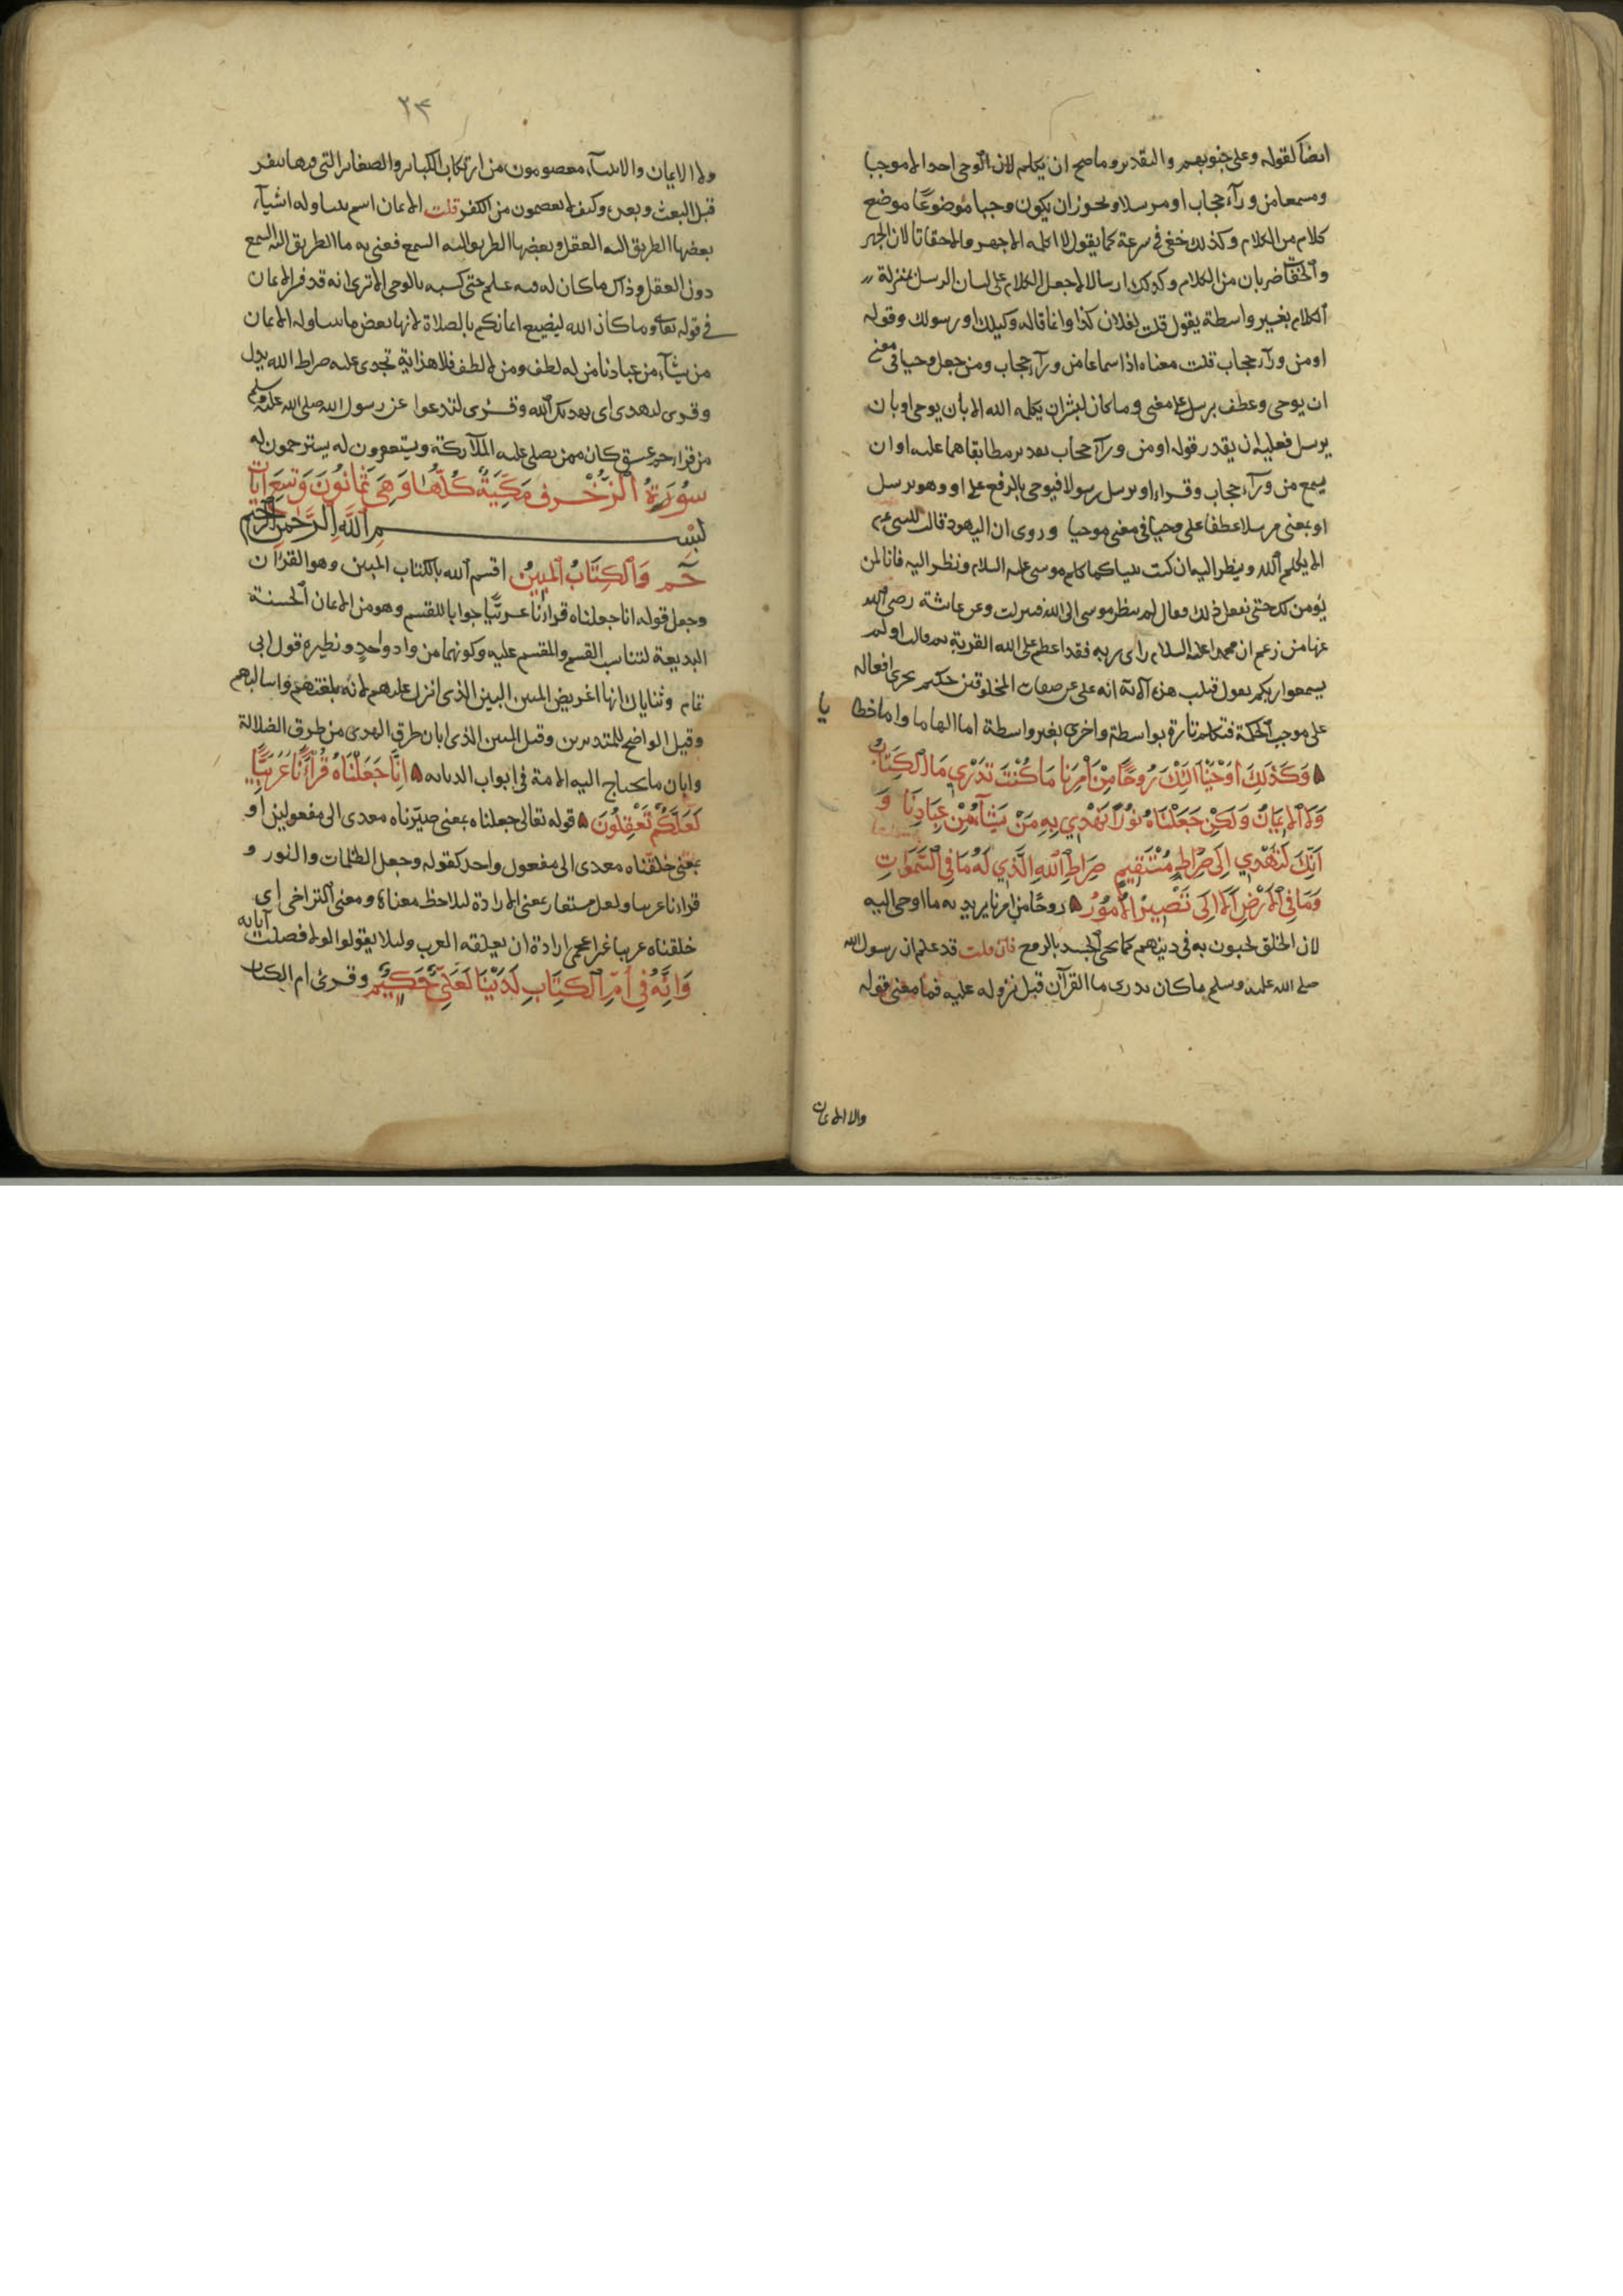 ايضا كقوله وعلى جنوبهم والتقدير وما صح ان يكلم لان الوحى احدا الا موحيا
ومسمعا من ورآء حجاب او مرسلا ويجوز ان يكون وحيا موضوعًا موضع
كلام من الكلام وكذلك خفى فى سرعة كما يقول لا اكلمه الا جهر والا خفاتا لان الجهر
والخفات ضربان من الكلام وكذلك ارسالا لا جعل الكلام على لسان الرسل بمنزلة
الكلام بغير واسطة يقول قلت لفلان كذا وانما قاله وكيلك او رسولك وقوله
او من ورآء حجاب قلت معناه اذا سماعا من ورآء حجاب ومن جعل وحيا فى معنى
ان يوحى وعطف يرسل على معنى وما كان لبشر ان يكلمه الله الا بان يوحى او بان
يرسل فعليه ان يقدر قوله او من ورآء حجاب بعد ير مطابقا هما عليه او ان
يسمع من ورآء حجاب وقراء او يرسل رسولا فيوحى بالرفع على او وهو يرسل
او بمعنى مرسلا عطفا على وحيا فى معنى موحيا وروى ان اليهود قالت للنبى
الا يكلم الله وينظر اليه ان كنت نبيا كما كلم موسى عليه السلام ونظر اليه فانا لن
نؤمن لك حتى نفعل ذلك فقال لم ينظر موسى الى الله فنزلت وعن عائشة رضى الله
عنها من زعم ان محمدا عليه السلام راى ربه فقد اعظم على الله الفرية ثم قالت او لم
يسمعوا ربكم يقول قبلت هذه الآية انه على عن صفات المخلوقين حكيم يجرى افعاله
على موجب الحكمة فتكلم تارة بواسطة واخرى بغير واسطة اما الهاما واما خطا يا
وَكَذَلِكَ اَوْحَيْنَا اِلَيْكَ رُوحًا مِنْ اَمْرِنَا مَا كُنْتَ تَدْرِي مَا الْكِتَابُ
وَلَا الْاِيمَانُ وَلَكِنْ جَعَلْنَاهُ نُورًا نَهْدِي بِهِ مَنْ نَشَآءُ مِنْ عِبَادِنَا وَ
اِنَّكَ لَتَهْدِي اِلَى صِرَاطٍ مُسْتَقِيمٍ صِرَاطِ اللَّهِ الَّذِي لَهُ مَا فِي السَّمَوَاتِ
وَمَا فِي الْاَرْضِ اَلَا اِلَى تَصِيرُ الْاُمُورُ روحًا من امرنا يريد به ما اوحى اليه
لان الخلق يحيون به فى دينهم كما يحيى الجسد بالروح فان قلت قد علم ان رسول الله
صلى الله عليه وسلم ما كان يدرى ما القرآن قبل نزوله عليه فما معنى قوله
والا الايمان
٢٣
ولا الايمان والانبيآء معصومون من ارتكاب الكبائر والصغائر التى فيها تنفر
قبل البعث وبعده وكيف لا يعصمون من الكفر قلت الايمان اسم يتناوله اشيآء
بعضها الطريق اليه العقل وبعضها الطريق اليه السمع فعنى به ما الطريق اليه السمع
دون العقل وذاك ما كان له فيه علم حتى كسبه بالوحى الا ترى انه قد فسر الايمان
فى قوله تعالى وما كان الله ليضيع ايمانكم بالصلاة لانها بعض ما يتناوله الايمان
من يشآء من عبادنا من له لطف ومن لا لطف فلا هداية تجدى عليه صراط الله بدل
وقرئ لتهدى اى يهديك الله وقرئ لتدعوا عن رسول الله صلى الله عليه وسلم
من قراء حم عسق كان ممن يصلى عليه الملآئكة ويستغفرون له يسترحمون له
سُورَةُ الزُّخْرُفِ مَكِّيَّةٌ كُلُّهَا وَهِىَ ثَمَانُونَ وَتِسْعَ اٰيَات
بِسْمِ اللَّهِ الرَّحْمٰنِ الرَّحِيمِ
حٰم وَالْكِتَابِ الْمُبِينِ اقسم الله بالكتاب المبين وهو القرآن
وجعل قوله انا جعلناه قرآنا عربيًّا جوابا للقسم وهو من الايمان الحسنة
البديعة لتناسب القسم والمقسم عليه وكونهما من واد واحد ونظيره قول ابى
تمام وثناياك انها اغريض المبين البين الذى انزل عليهم لانه بلغتهم واساليبهم
وقيل الواضح للمتدبرين وقيل المبين الذى ابان طرق الهدى من طرق الضلالة
وابان ما يحتاج اليه الامة فى ابواب الديانه اِنَّا جَعَلْنَاهُ قُرْآنًا عَرَبِيًّا
لَعَلَّكُمْ تَعْقِلُونَ قوله تعالى جعلناه بمعنى صيّرناه معدى الى مفعولين او
بمعنى خلقناه معدى الى مفعول واحد كقوله وجعل الظلمات والنور و
قرآنا عربيا ولعل مستعار بمعنى الارادة ليلاحظ معناها ومعنى التراخى اى
خلقناه عربيا غير اعجمى ارادة ان يعقله العرب ولئلا يقولوا لولا فصلت آياته
وَاِنَّهُ فِى اُمِّ الْكِتَابِ لَدَيْنَا لَعَلِىٌّ حَكِيمٌ وقرئ ام الكتاب